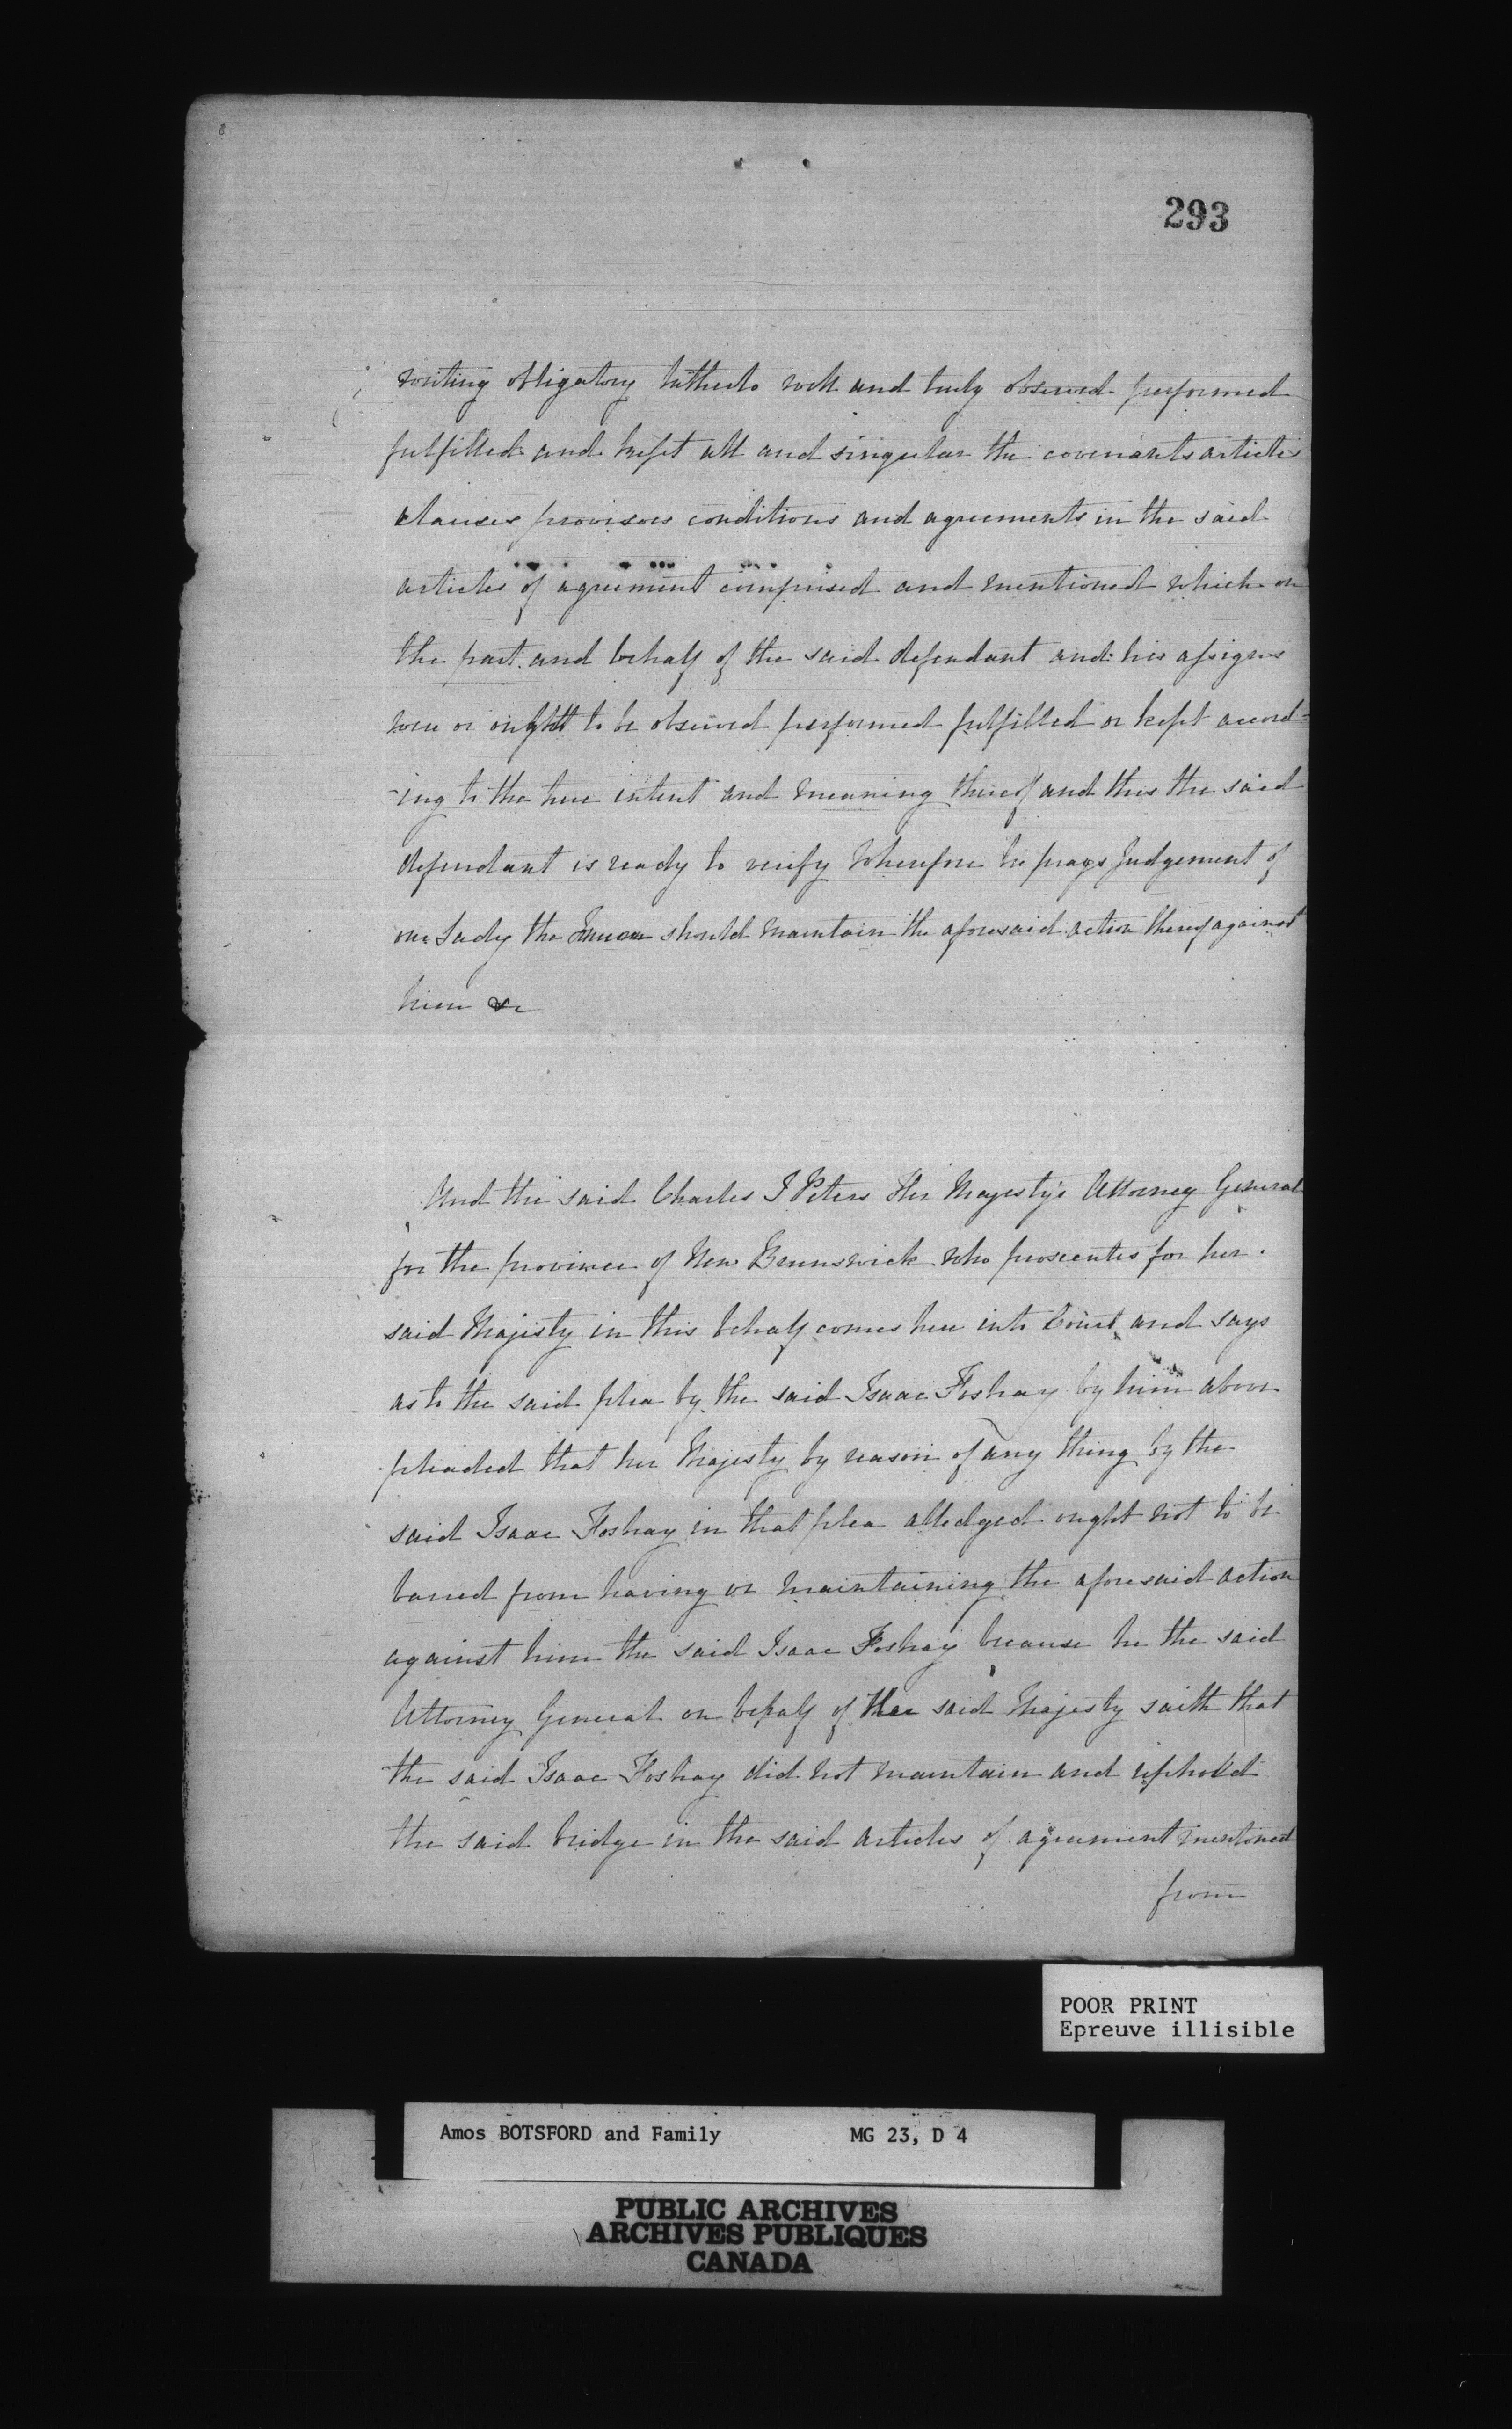 293
writing obligatory hitherto well and truly observed performed
fulfilled and kept all and singular the covenants articles
clauses provisoes conditions and agreements in the said
articles of agreement comprised and mentioned which on
the part and behalf of the said defendant and his assigns
were or ought to be observed performed fulfilled or kept accord=
ing to the true intent and meaning thereof and this the said
defendant is ready to verify Wherefore he prays Judgement if
our Lady the Queen should maintain the aforesaid action thereof against
him &c
And the said Charles J Peters Her Majesty's Attorney General
for the province of New Brunswick who prosecutes for her
said Majesty in this behalf comes here into Court and says
as to the said plea by the said Isaac Foshay by him above
pleaded that her Majesty by reason of any thing by the
said Isaac Foshay in that plea alledged ought not to be
barred from having or maintaining the aforesaid action
against him the said Isaac Foshay because he the said
Attorney General on behalf of Her said Majesty saith that
the said Isaac Foshay did not maintain and uphold
the said bridge in the said articles of agreement mentioned
from
POOR PRINT
Epreuve illisible
Amos BOTSFORD and Family MG 23, D 4
PUBLIC ARCHIVES
ARCHIVES PUBLIQUES
CANADA